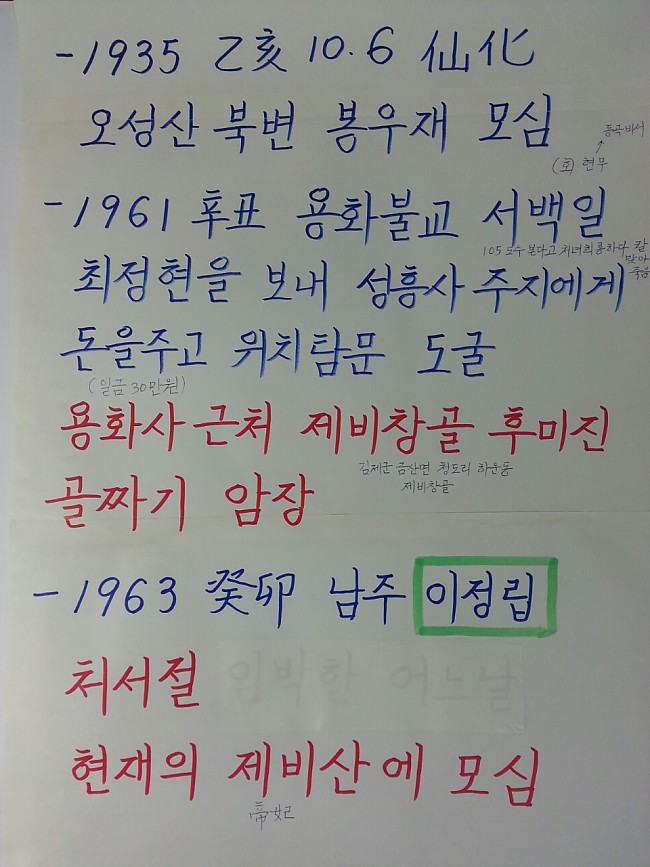 -1935 乙亥 10.6 仙化
오성산 북변 봉우재 모심
동곡비서
↑
(호) 현무
-1961 辛丑 용화불교 서백일
105도수 본다고 처녀희롱하다 칼 맞아 죽음
최정현을 보내 성흥사 주지에게
돈을주고 위치탐문 도굴
(일금 30만원)
용화사 근처 제비창골 후미진
김제군 금산면 청도리 하운동
제비창골
골짜기 암장
-1963 癸卯 남주 이정립
처서절 임박한 어느날
현재의 제비산에 모심
帝妃